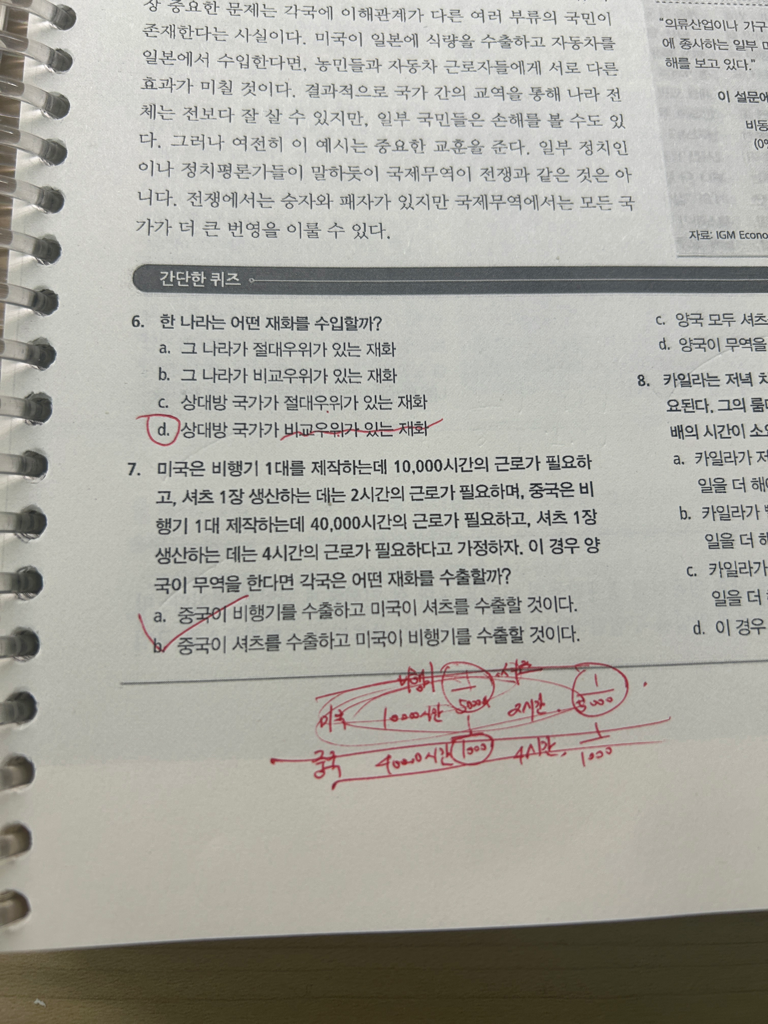 상 중요한 문제는 각국에 이해관계가 다른 여러 부류의 국민이
존재한다는 사실이다. 미국이 일본에 식량을 수출하고 자동차를
일본에서 수입한다면, 농민들과 자동차 근로자들에게 서로 다른
효과가 미칠 것이다. 결과적으로 국가 간의 교역을 통해 나라 전
체는 전보다 잘 살 수 있지만, 일부 국민들은 손해를 볼 수도 있
다. 그러나 여전히 이 예시는 중요한 교훈을 준다. 일부 정치인
이나 정치평론가들이 말하듯이 국제무역이 전쟁과 같은 것은 아
니다. 전쟁에서는 승자와 패자가 있지만 국제무역에서는 모든 국
가가 더 큰 번영을 이룰 수 있다.
간단한 퀴즈
6. 한 나라는 어떤 재화를 수입할까?
a. 그 나라가 절대우위가 있는 재화
b. 그 나라가 비교우위가 있는 재화
c. 상대방 국가가 절대우위가 있는 재화
d. 상대방 국가가 비교우위가 있는 재화
7. 미국은 비행기 1대를 제작하는데 10,000시간의 근로가 필요하
고, 셔츠 1장 생산하는 데는 2시간의 근로가 필요하며, 중국은 비
행기 1대 제작하는데 40,000시간의 근로가 필요하고, 셔츠 1장
생산하는 데는 4시간의 근로가 필요하다고 가정하자. 이 경우 양
국이 무역을 한다면 각국은 어떤 재화를 수출할까?
a. 중국이 비행기를 수출하고 미국이 셔츠를 수출할 것이다.
b. 중국이 셔츠를 수출하고 미국이 비행기를 수출할 것이다.
비행기 셔츠
미국 시간 2시간
중국 시간 4시간 1/1000
"의류산업이나 가구
에 종사하는 일부
해를 보고 있다."
이 설문에
비동
(0%
자료: IGM Econo
c. 양국 모두 셔츠
d. 양국이 무역을
8. 카일라는 저녁
요된다. 그의 룸
배의 시간이 소
a. 카일라가 저
일을 더 해
b. 카일라가
일을 더 해
c. 카일라가
일을 더
d. 이 경우